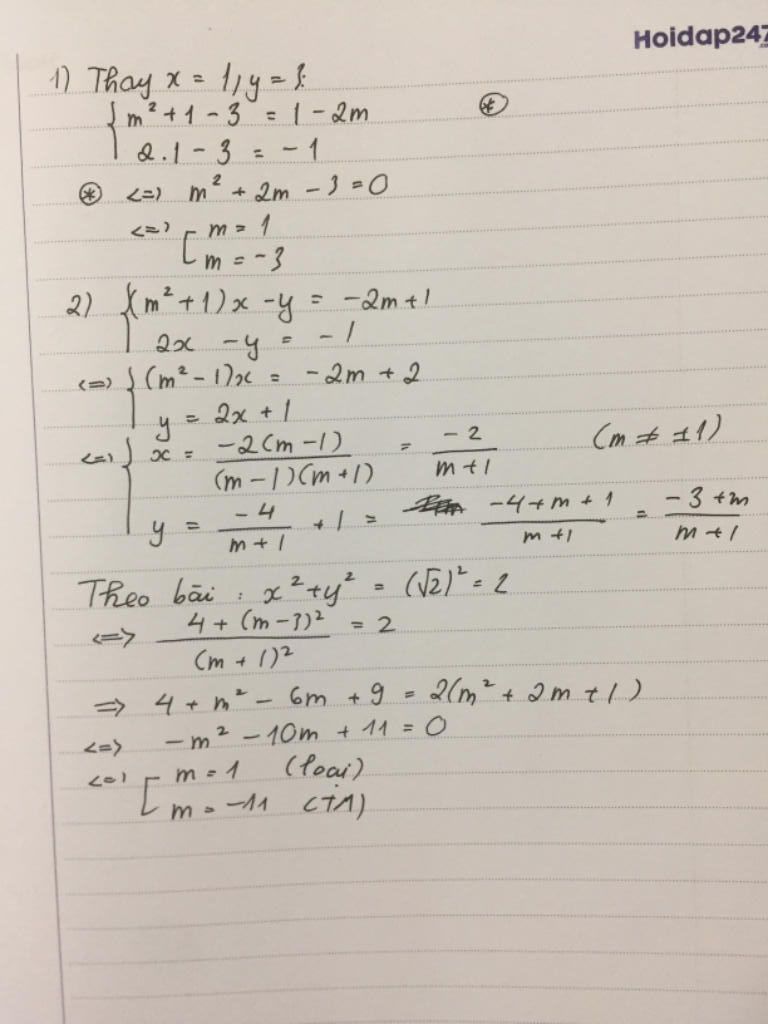 Hoidap247
1) Thay x = 1, y = 3:
{ m² + 1 - 3 = 1 - 2m (*)
2.1 - 3 = -1
(*) <=> m² + 2m - 3 = 0
<=> [ m = 1
m = -3
2) { (m² + 1)x - y = -2m + 1
2x - y = -1
<=> { (m² - 1)x = -2m + 2
y = 2x + 1
<=> { x = \frac{-2(m-1)}{(m-1)(m+1)} = \frac{-2}{m+1} (m ≠ ±1)
y = \frac{-4}{m+1} + 1 = \frac{-4+m+1}{m+1} = \frac{-3+m}{m+1}
Theo bài : x² + y² = (√2)² = 2
<=> \frac{4 + (m-3)²}{(m+1)²} = 2
=> 4 + m² - 6m + 9 = 2(m² + 2m + 1)
<=> -m² - 10m + 11 = 0
<=> [ m = 1 (loại)
m = -11 (TM)